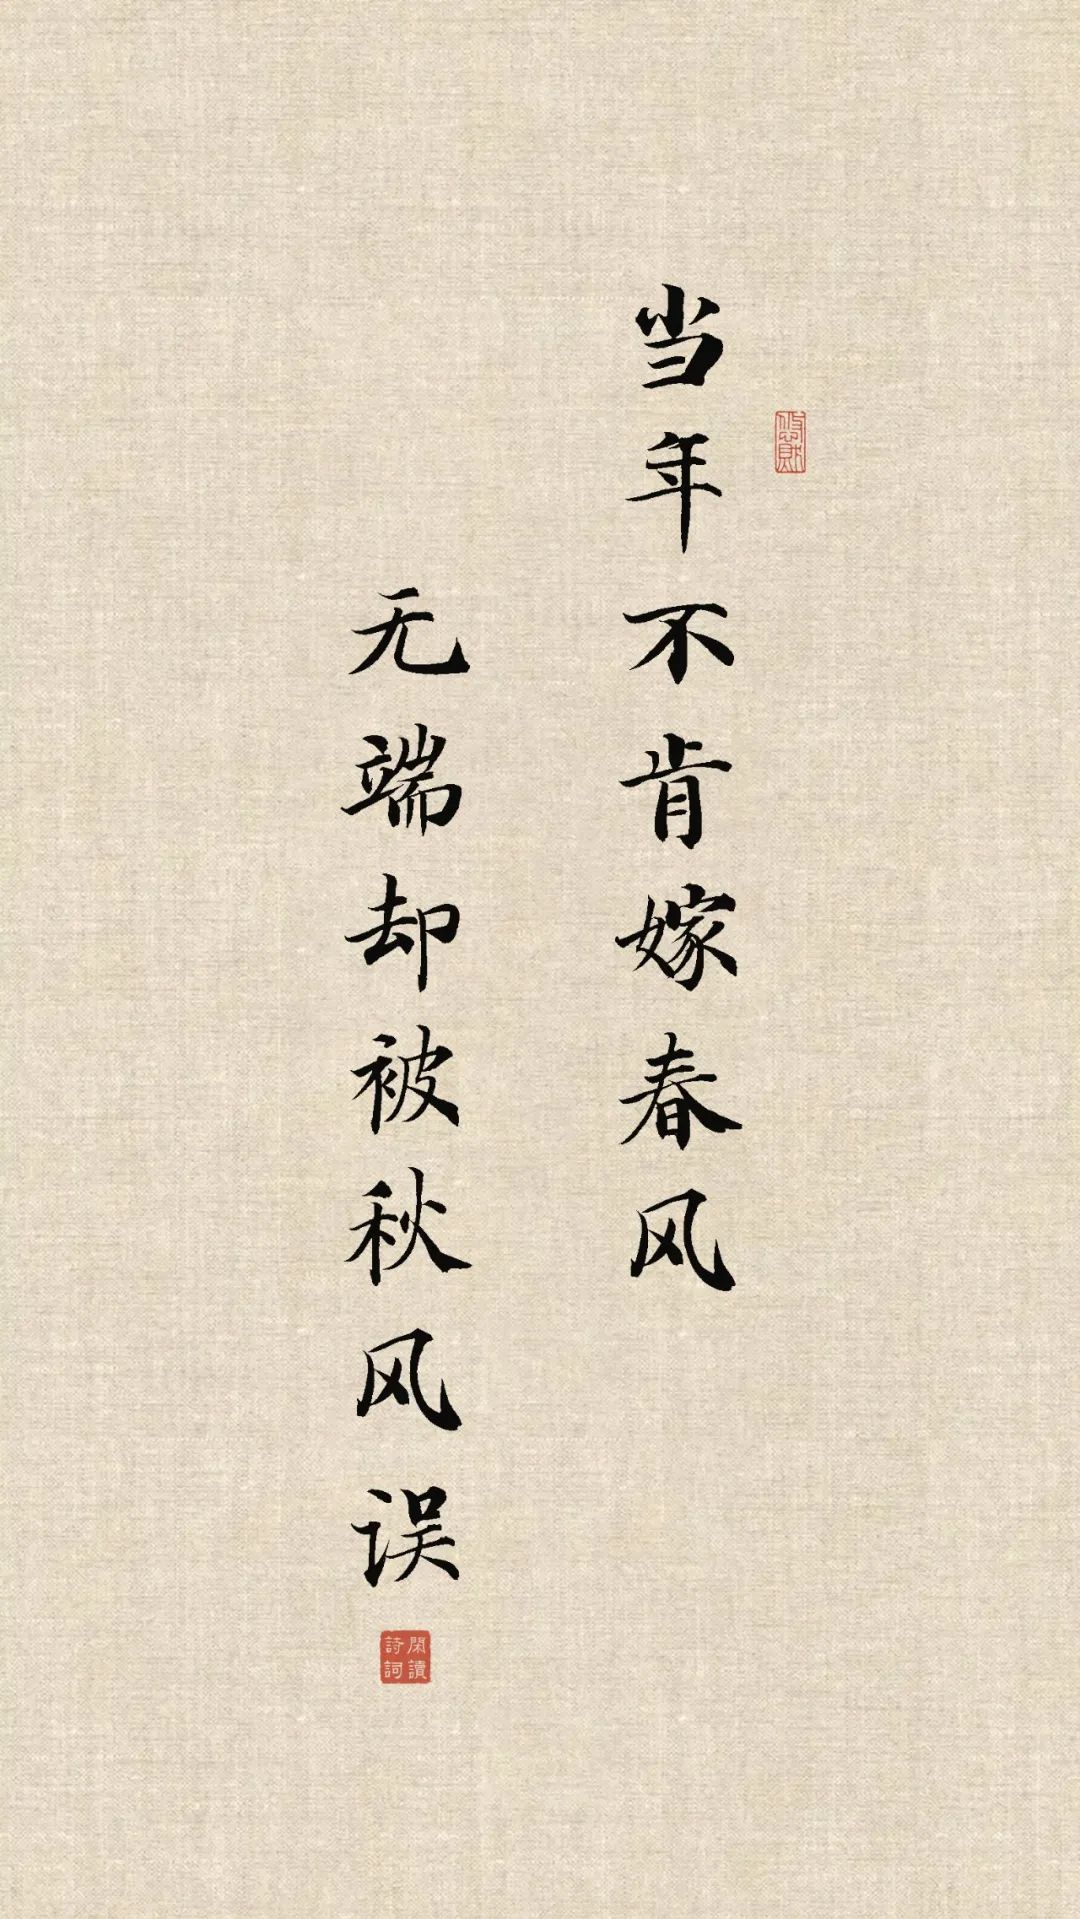 当年不肯嫁春风
无端却被秋风误
閑讀
詩詞